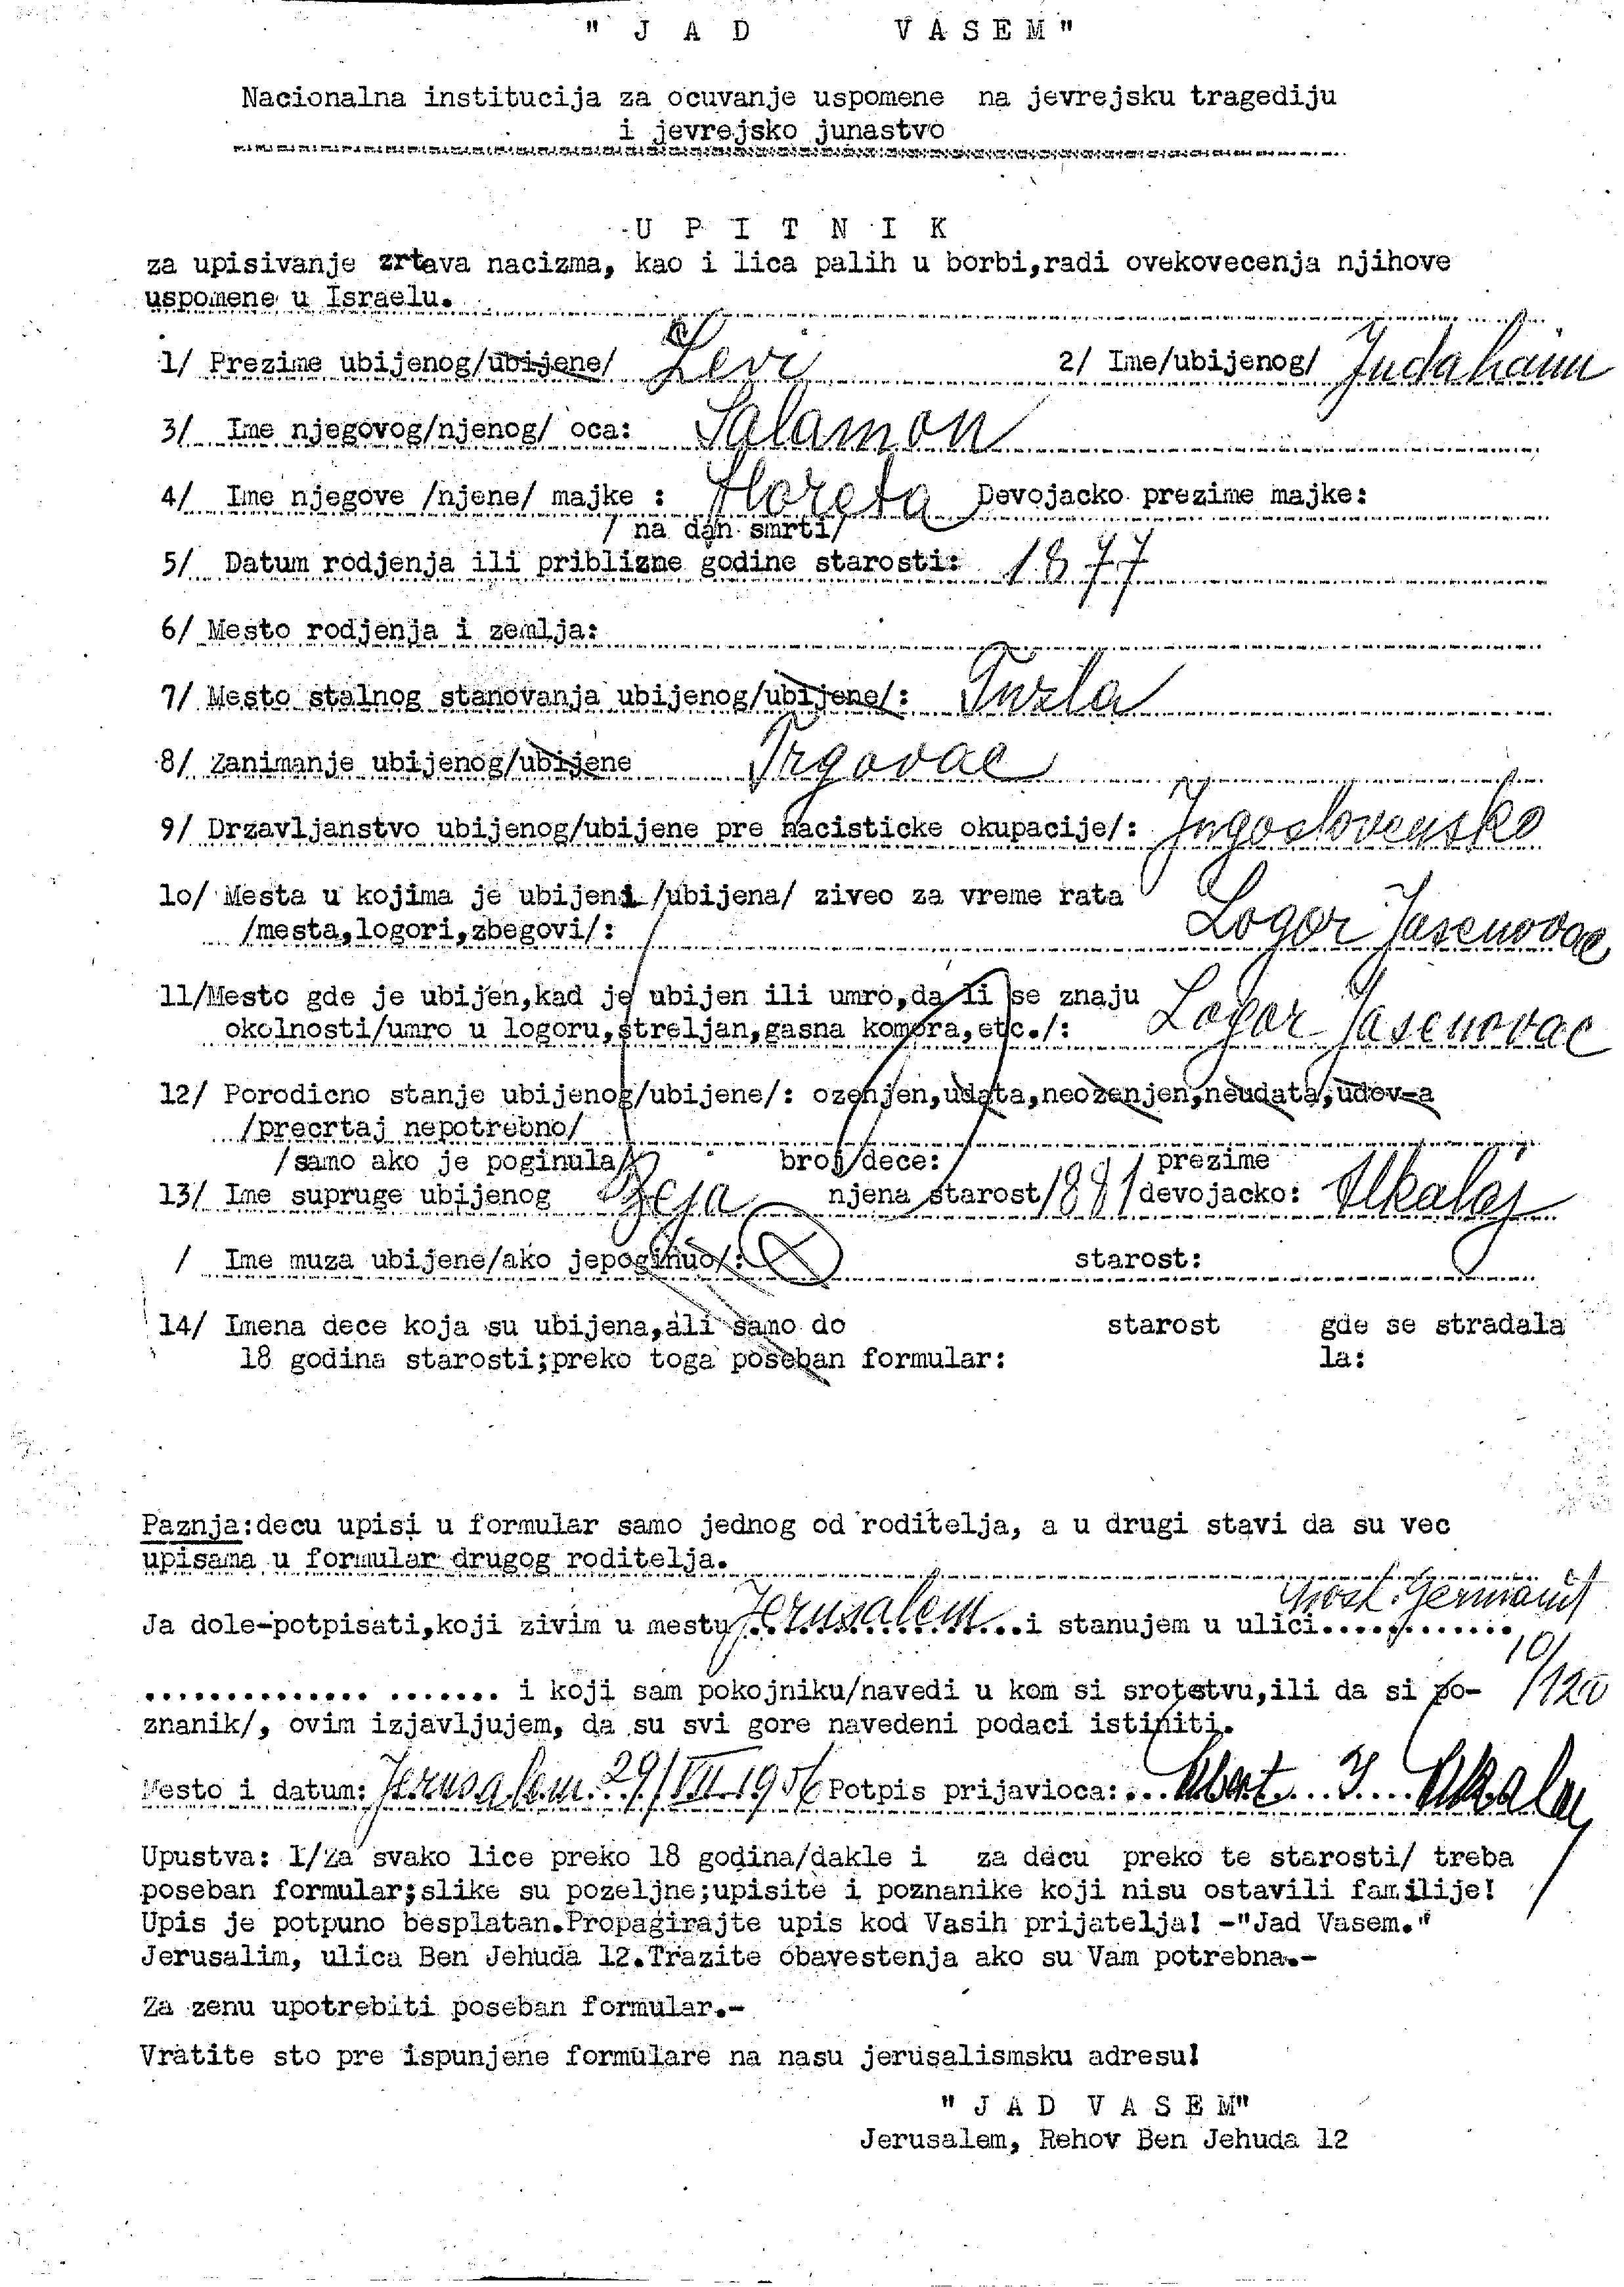 " J A D   V A S E M "
Nacionalna institucija za ocuvanje uspomene na jevrejsku tragediju
i jevrejsko junastvo
U P I T N I K
za upisivanje zrtava nacizma, kao i lica palih u borbi,radi ovekovecenja njihove
uspomene u Israelu.
1/ Prezime ubijenog/ubijene/ Levi 2/ Ime/ubijenog/ Judahaim
3/ Ime njegovog/njenog/ oca: Salamon
4/ Ime njegove /njene/ majke : Floreta Devojacko prezime majke:
/ na dan smrti/
5/ Datum rodjenja ili priblizne godine starosti: 1877
6/ Mesto rodjenja i zemlja:
7/ Mesto stalnog stanovanja ubijenog/ubijene/: Tuzla
8/ Zanimanje ubijenog/ubijene Trgovac
9/ Drzavljanstvo ubijenog/ubijene pre nacisticke okupacije/: Jugoslovensko
lo/ Mesta u kojima je ubijeni /ubijena/ ziveo za vreme rata
/mesta,logori,zbegovi/: Logor Jasenovac
11/Mesto gde je ubijen,kad je ubijen ili umro,da li se znaju
okolnosti/umro u logoru,streljan,gasna komora,etc./: Logor Jasenovac
12/ Porodicno stanje ubijenog/ubijene/: ozenjen,udata,neozenjen,neudata,udov-a
/precrtaj nepotrebno/
/samo ako je poginula/ broj dece: prezime
13/ Ime supruge ubijenog njena starost 1881 devojacko: Alkalaj
/ Ime muza ubijene/ako jepoginuo/: starost:
14/ Imena dece koja su ubijena,ali samo do starost gde se stradala
18 godina starosti;preko toga poseban formular: la:
Paznja:decu upisi u formular samo jednog od roditelja, a u drugi stavi da su vec
upisama u formular drugog roditelja.
Ja dole-potpisati,koji zivim u mestu Jerusalem i stanujem u ulici
10/120
i koji sam pokojniku/navedi u kom si srotstvu,ili da si po-
znanik/, ovim izjavljujem, da su svi gore navedeni podaci istiniti.
Mesto i datum: Jerusalem 29/VII 1956 Potpis prijavioca: Albert J Alkalaj
Upustva: 1/Za svako lice preko 18 godina/dakle i za decu preko te starosti/ treba
poseban formular;slike su pozeljne;upisite i poznanike koji nisu ostavili familije!
Upis je potpuno besplatan.Propagirajte upis kod Vasih prijatelja! -"Jad Vasem."
Jerusalim, ulica Ben Jehuda 12.Trazite obavestenja ako su Vam potrebna.-
Za zenu upotrebiti poseban formular.-
Vratite sto pre ispunjene formulare na nasu jerusalismsku adresu!
" J A D V A S E M"
Jerusalem, Rehov Ben Jehuda 12